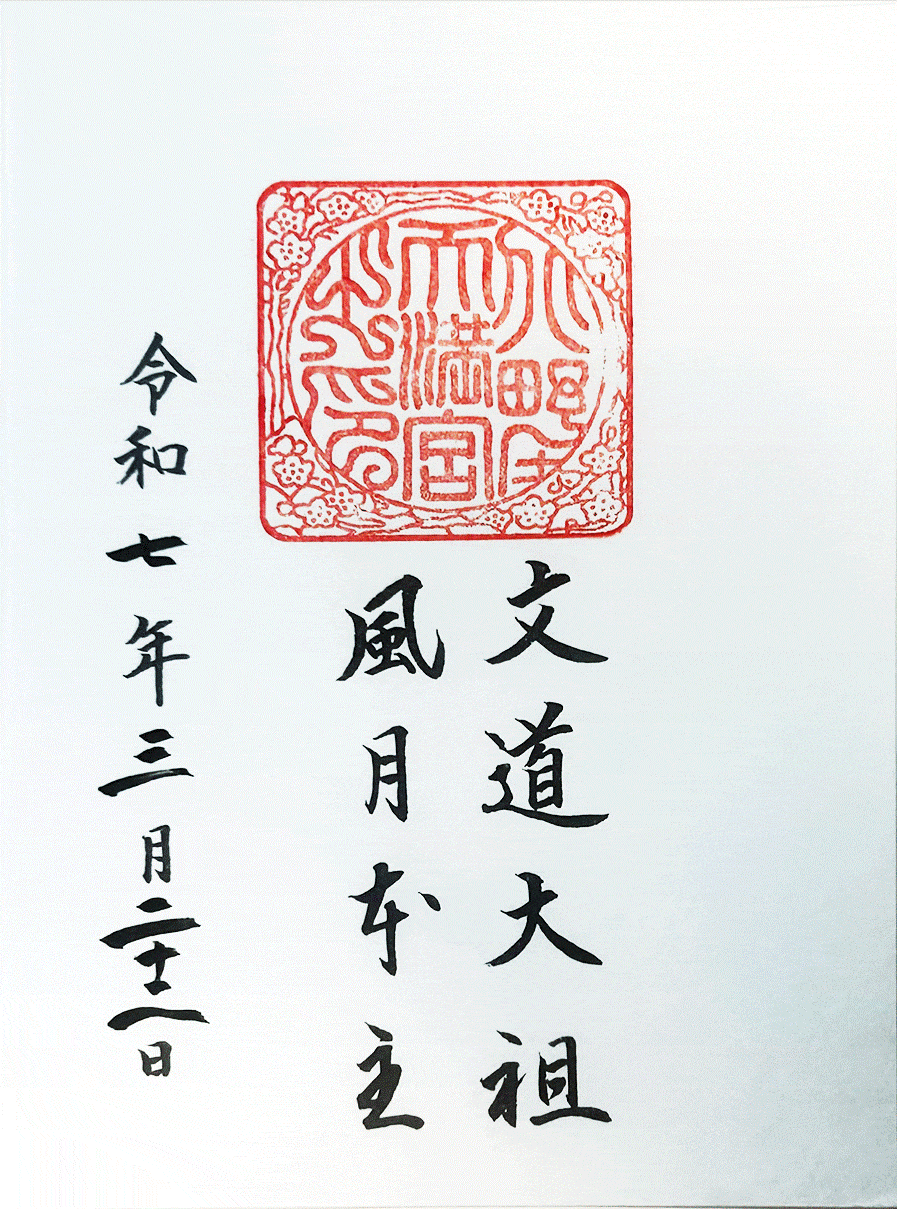 天満宮
文道大祖
風月本主
令和七年三月二十八日